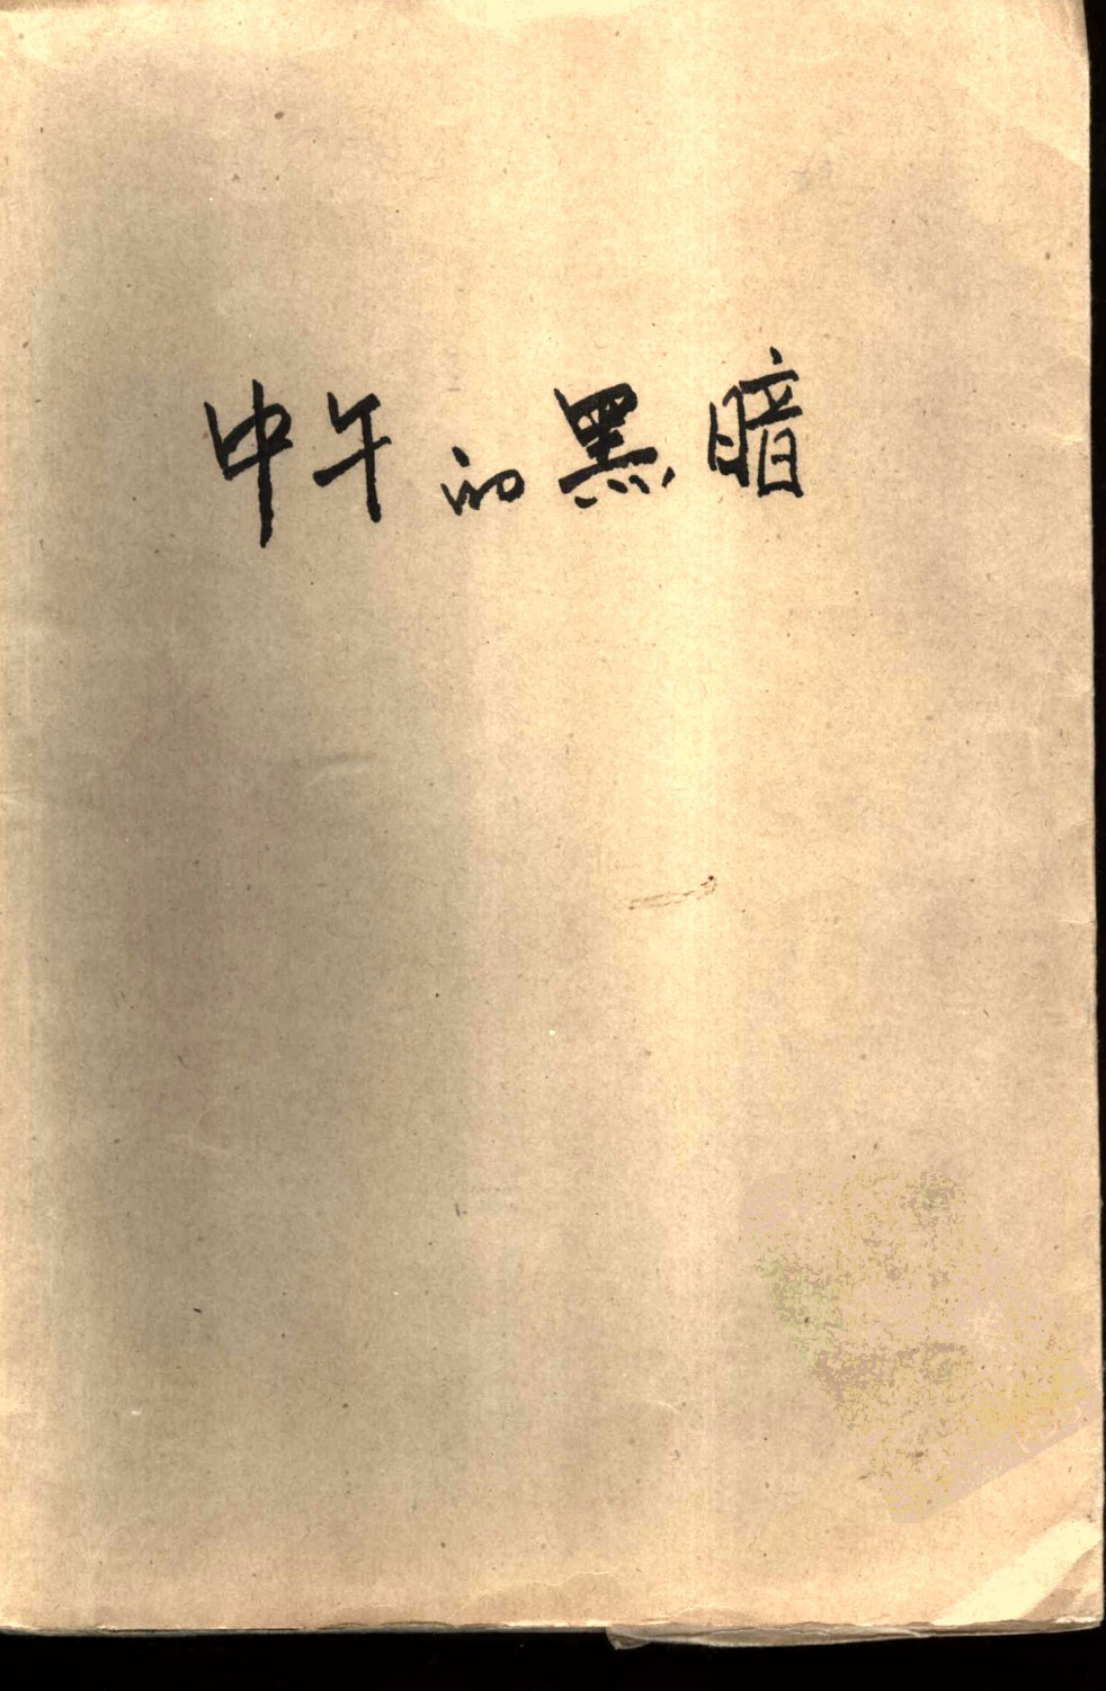 中午的黑暗